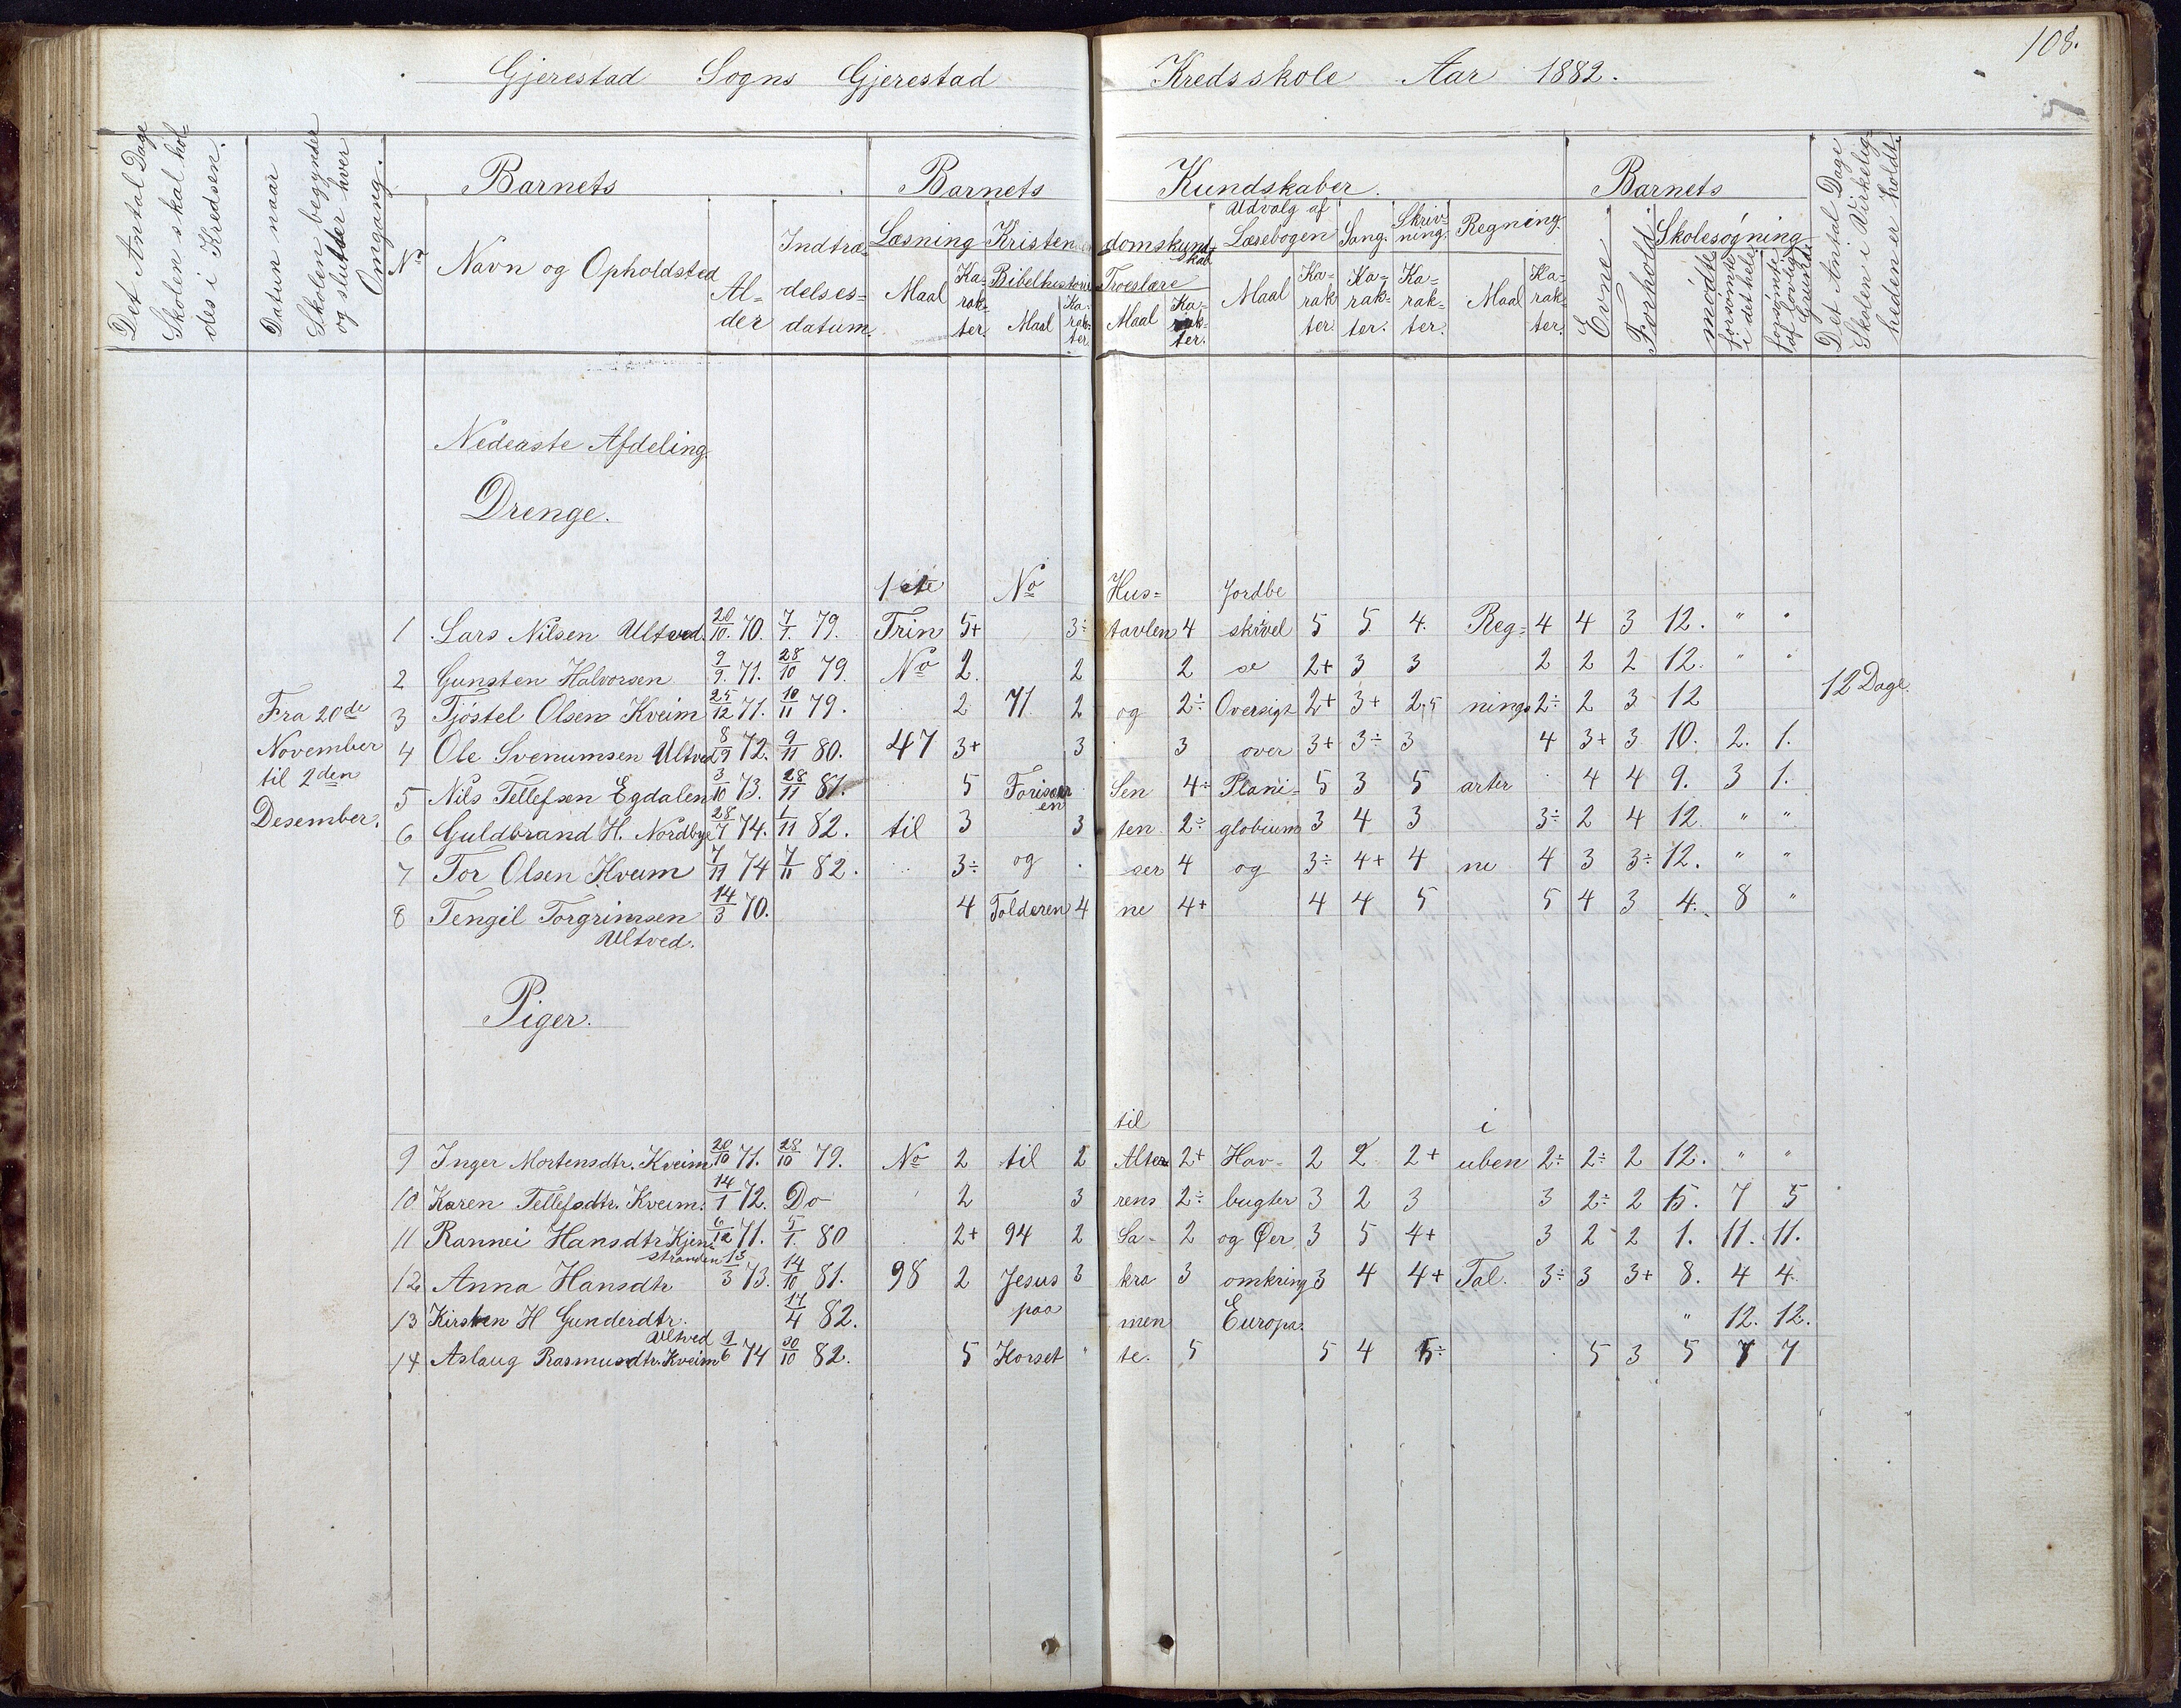 108.
Gjerestad Sogns Gjerestad Kredsskole Aar 1882.
Det Antal Dage Skolen skal holdes i Kredsen.
Datum naar Skolen begynder og slutter hver Omgang.
Barnets Barnets Kundskaber. Barnets
Nr Navn og Opholdsted Al=der Indtræ=delses=datum.
Læsning Kristendomskundskab Udvalg af Læsebogen Sang. Skriv=ning. Regning.
Maal Ka=rak=ter. Bibelhistorie Maal Ka=rak=ter. Troeslære Maal Ka=rak=ter. Maal Ka=rak ter. Ka=rak=ter. Ka=rak=ter. Maal Ka=rak=ter.
Evne Forhold Skolesøgning mødte forsømte i det hele forsømte af lovlig Grund
Det Antal Dage Skolen i Virkelig=heden er holdt.
Nederste Afdeling.
Drenge.
1ste No Hus= Jordbe
1 Lars Nilsen Ultved. 20/10. 70. 7/1. 79. Trin 5+ 3÷ tavlen 4 skrivel 5 5 4. Reg= 4 4 3 12. " "
2 Gunsten Halvorsen 9/9. 71. 28/10 79. No 2. 2 2 se 2+ 3 3 2 2 2 12. " "
3 Tjöstel Olsen Kveim 25/12 71. 10/11 79. 2 71 2 og 2÷ Oversigt 2+ 3+ 2,5 nings 2÷ 2 3 12
4 Ole Svenumsen Ultved 8/9 72. 9/11 80. 47 3+ 3 3 over 3+ 3÷ 3 4 3+ 3 10. 2. 1.
5 Nils Tellefsen Egdalen 3/10 73. 28/11 81. 5 Sen 4÷ Plani= 5 3 5 arter 4 4 9. 3 1.
6 Guldbrand H. Nordbye 28/7 74. 1/11 82. til 3 3 ten 2÷ globium 3 4 3 3÷ 2 4 12. " "
7 Tor Olsen Kveim 7/11 74 7/11 82. 3÷ og ser 4 og 3÷ 4+ 4 ne 4 3 3÷ 12. " "
8 Tengil Torgrimsen 14/3 70. 4 Tolderen 4 ne 4+ 4 4 5 5 4 3 4. 8 "
Ultved.
Fra 20de
November
til 2den
Desember.
12 Dage.
Piger.
til i
9 Inger Mortensdtr. Kveim 20/10 71. 28/10 79. No 2 til 2 Alter= 2+ Hav= 2 2 2+ uben 2÷ 2÷ 2 12. " "
10 Karen Tellefsdtr. Kveim. 14/1 72. Do 2 3 rens 2÷ bugter 3 2 3 3 2÷ 2 5. 7 5
11 Rannei Hansdtr Kjen= 6/12 71. 5/1. 80 2+ 94 2 Sa= 2 og Øer 3 5 4+ 3 2 2 1. 11. 11.
stranden
12 Anna Hansdtr 13/3 73. 14/10 81. 98 2 Jesus 3 kra 3 omkring 3 4 4+ Tal. 3÷ 3 3+ 8. 4 4.
13 Kirsten H Gunderdtr. 14/4 82. paa men Europa. " 12. 12.
Ultved
14 Aslaug Rasmusdtr. Kveim 9/6 74 30/10 82. 5 Korset te. 5 5 4 5÷ 5 3 5 7 7